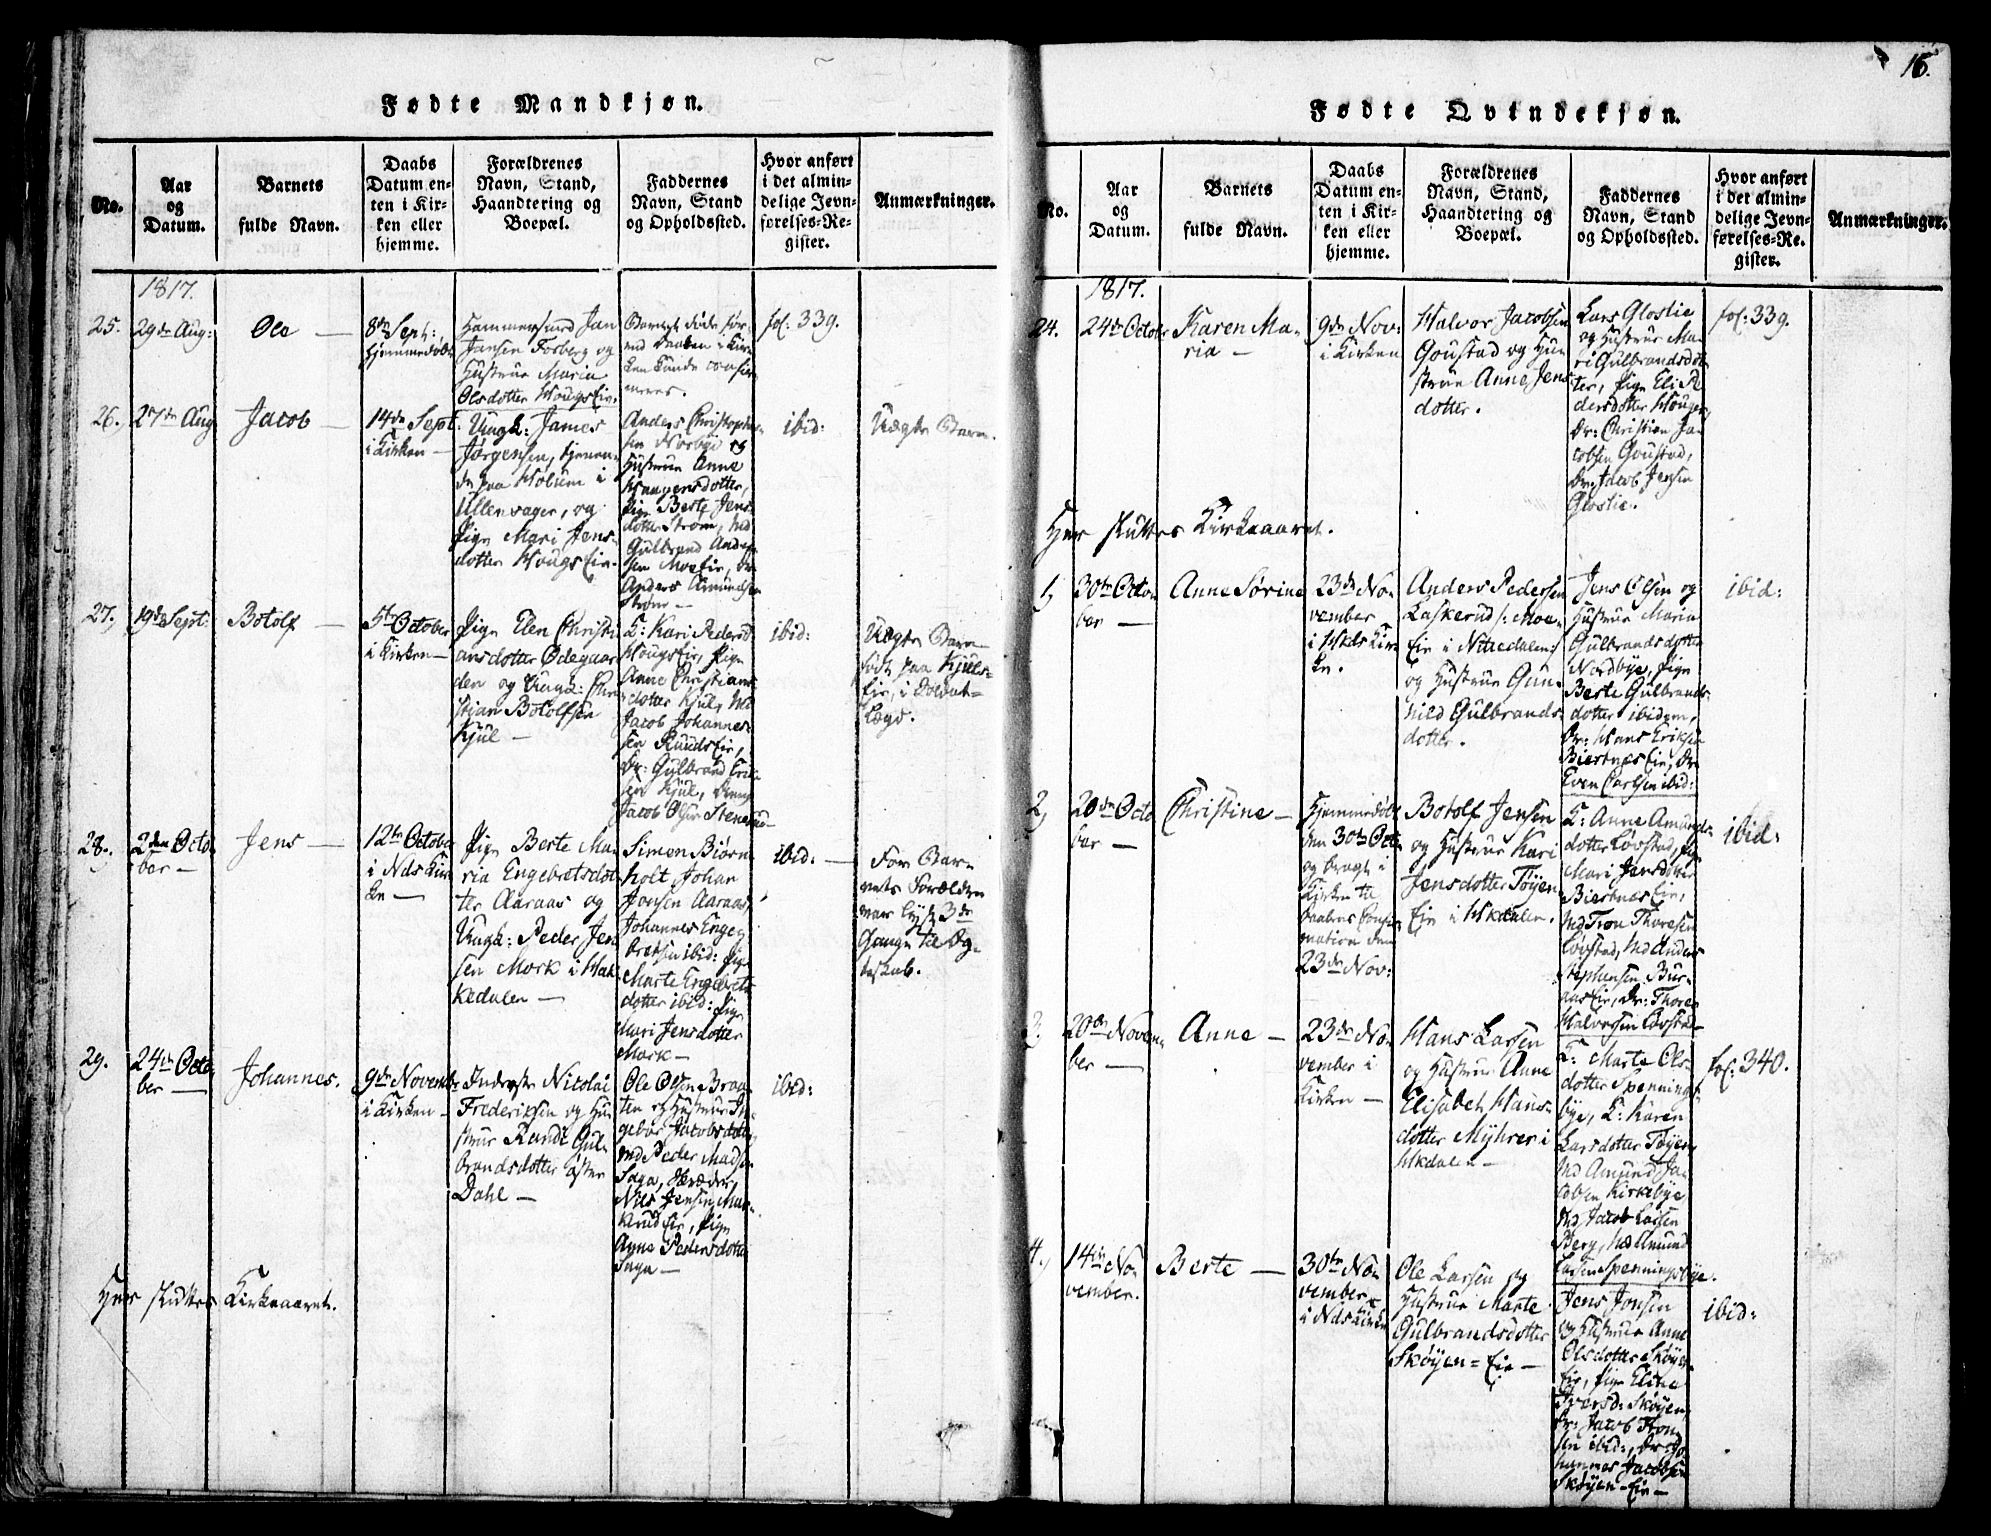 15.
Fødte Mandkjøn.
No.
Aar
og
Datum.
Barnets
fulde Navn.
Daabs
Datum en-
ten i Kir-
ken eller
hjemme.
Forældrenes
Navn, Stand,
Haandtering og
Boepæl.
Faddernes
Navn, Stand
og Opholdssted.
Hvor anført
i det almin-
delige Jevn-
førelses-Re-
gister.
Anmærkninger.
1817.
25.
29de Aug:
Ole
8de Sept:
hjemmedøbt
Hammersmed Jan
Jansen Forberg og
Hustrue Maria
Olsdotter Hougs Eie.
Barnet døde før-
end Daaben i Kir-
ken kunde confir-
meres.
fol: 339.
26.
27de Aug
Jacob
14de Sept:
i Kirken
Ungk: James
Jørgensen, tjenen-
de paa Holum i
Ullensager, og
Pige Mari Jens-
dotter Hougs Eie.
Anders Christopher-
sen Norbye og
Hustrue Anne
Haagensdotter,
Pige Berte Jens-
dotter Strøm, Md
Gulbrand Ander-
sen Moe Eie, Dr:
Anders Amundsen
Strøm
ibid:
Uægte Barn.
27,
19de Sept:
Botolf
5te October
i Kirken
Pige Elen Christi-
ansdotter Ødegaar-
den og Ungk: Chri-
stian Botolfsen
Kjul
K: Kari Pedersd
Hougs Eie, Pige
Anne Christians-
dotter Kjul, Md
Jacob Johannes-
sen Ruuds Eie,
Dr: Gulbrand Erik-
sen Kjul,
Jacob Olsen Stenerud
ibid:
Uægte Barn
født paa Kjuls-
Eie, i Soldat-
Lægd.
28.
2den Octo-
ber
Jens
12te October
i Nds Kir-
ken
Pige Berte Ma-
ria Engebretsdot-
ter Aaraas og
Ungk: Peder Jen-
sen Mork i Hak-
kedalen
Simon Biørn-
holt, Johan
Jonsen Aaraas,
Johannes Engeg-
bretsen ibid: Pige
Marte Engebrets-
dotter ibid: Pige
Mari Jensdotter
Mork
ibid:
For Bar-
nets Forældre
var lyst 3de
Gange til Æg-
teskab.
29.
24de Octo-
ber
Johannes.
9de November
i Kirken
Inderster Nicolai
Frederiksen og Hu-
strue Randi Gul-
brandsdotter øster
Dahl
Ole Olsen Braa-
ten og Hustrue In-
gebor Jacobsdotter
Md Peder Madsen
Saga,
Nils Jensen Mar-
kerud Eie, Pige
Anne Pedersdotter
Saga
ibid:
Her sluttes Kirkeaaret.
Fødte Qvindekjøn.
No.
Aar
og
Datum.
Barnets
fulde Navn.
Daabs
Datum en-
ten i Kir-
ken eller
hjemme.
Forældrenes
Navn, Stand,
Haandtering og
Boepæl.
Faddernes
Navn, Stand
og Opholdssted.
Hvor anført
i der almin-
delige Jevn-
førelses-Re-
gister.
Anmærkninger.
1817.
24.
24de Octobr
Karen Ma-
ria
9de Nov:
i Kirken
Halvor Jacobsen
Goustad og Hu-
strue Anne Jens
dotter.
Lars Gloslie
og Hustrue Ma-
ri Gulbrandsdot-
ter, Pige Eli A
dersdotter Houger,
Dr: Christian Ja-
cobsen Goustad,
Dr: Jacob Jensen
Gloslie.
fol: 339.
Her sluttes Kirkeaaret.
1,
30te Octo-
ber
Anne Sørine
23de No-
vember
i Hkds Kir-
ken.
Anders Pedersen
Laskerud /: Moe-
Eie i Nittedalen:/
og Hustrue Gun-
hild Gulbrands-
dotter.
Jens Olsen og
Hustrue Maria
Gulbrandsdotter
Nordbye, Pige
Berte Gulbrands-
dotter ibidem,
Dr: Hans Eriksen
Biertnæs Eie, Dr
Even Carlsen ibid:
ibid:
2,
20de Octo
ber
Christine
Hjemmedøbt
den 30te Octo
og bragt i
Kirken til
Daabens Confir-
mation den
23de Nov:
Botolf Jensen
og Hustrue Kari
Jensdotter Tøyen
Eie i Hkdalen.
K: Anne Amunds-
dotter Løvstad, Pige
Mari Jensdotter
Biertnæs Eie,
Md Tron Thoresen
Løvstad, Md Anders
Stephensen Bur-
aas Eie, Dr: Thore
Halvorsen Løvstad
ibid:
3.
20de Novem-
ber
Anne
23de No-
vember i
Kirken
Hans Larsen
og Hustrue Anne
Elisabet Hans-
dotter Myhrer i
Hkdalen
K: Marte Ols-
dotter Spennings-
bye, K: Karen
Larsdotter Tøyen
Md Amund Ja-
cobsen Kirkebye
Md Jacob Larsen
Berg, Md Amund
Larsen Spenningsbye.
fol: 340.
4,
14de No-
vember.
Berte
30te No-
vember
i Nds Kirke
Ole Larsen og
Hustrue Marte
Gulbrandsdotter
Skøyen=Eie
Jens Jonsen
og Hustrue Anne
Olsdotter Skøyen
Eie, Pige Eline
Iversd: Skøyen,
Dr: Jacob Tron-
sen ibid:, Dr: Jo-
hannes Jacobsen
Skøyen-Eie
ibid: